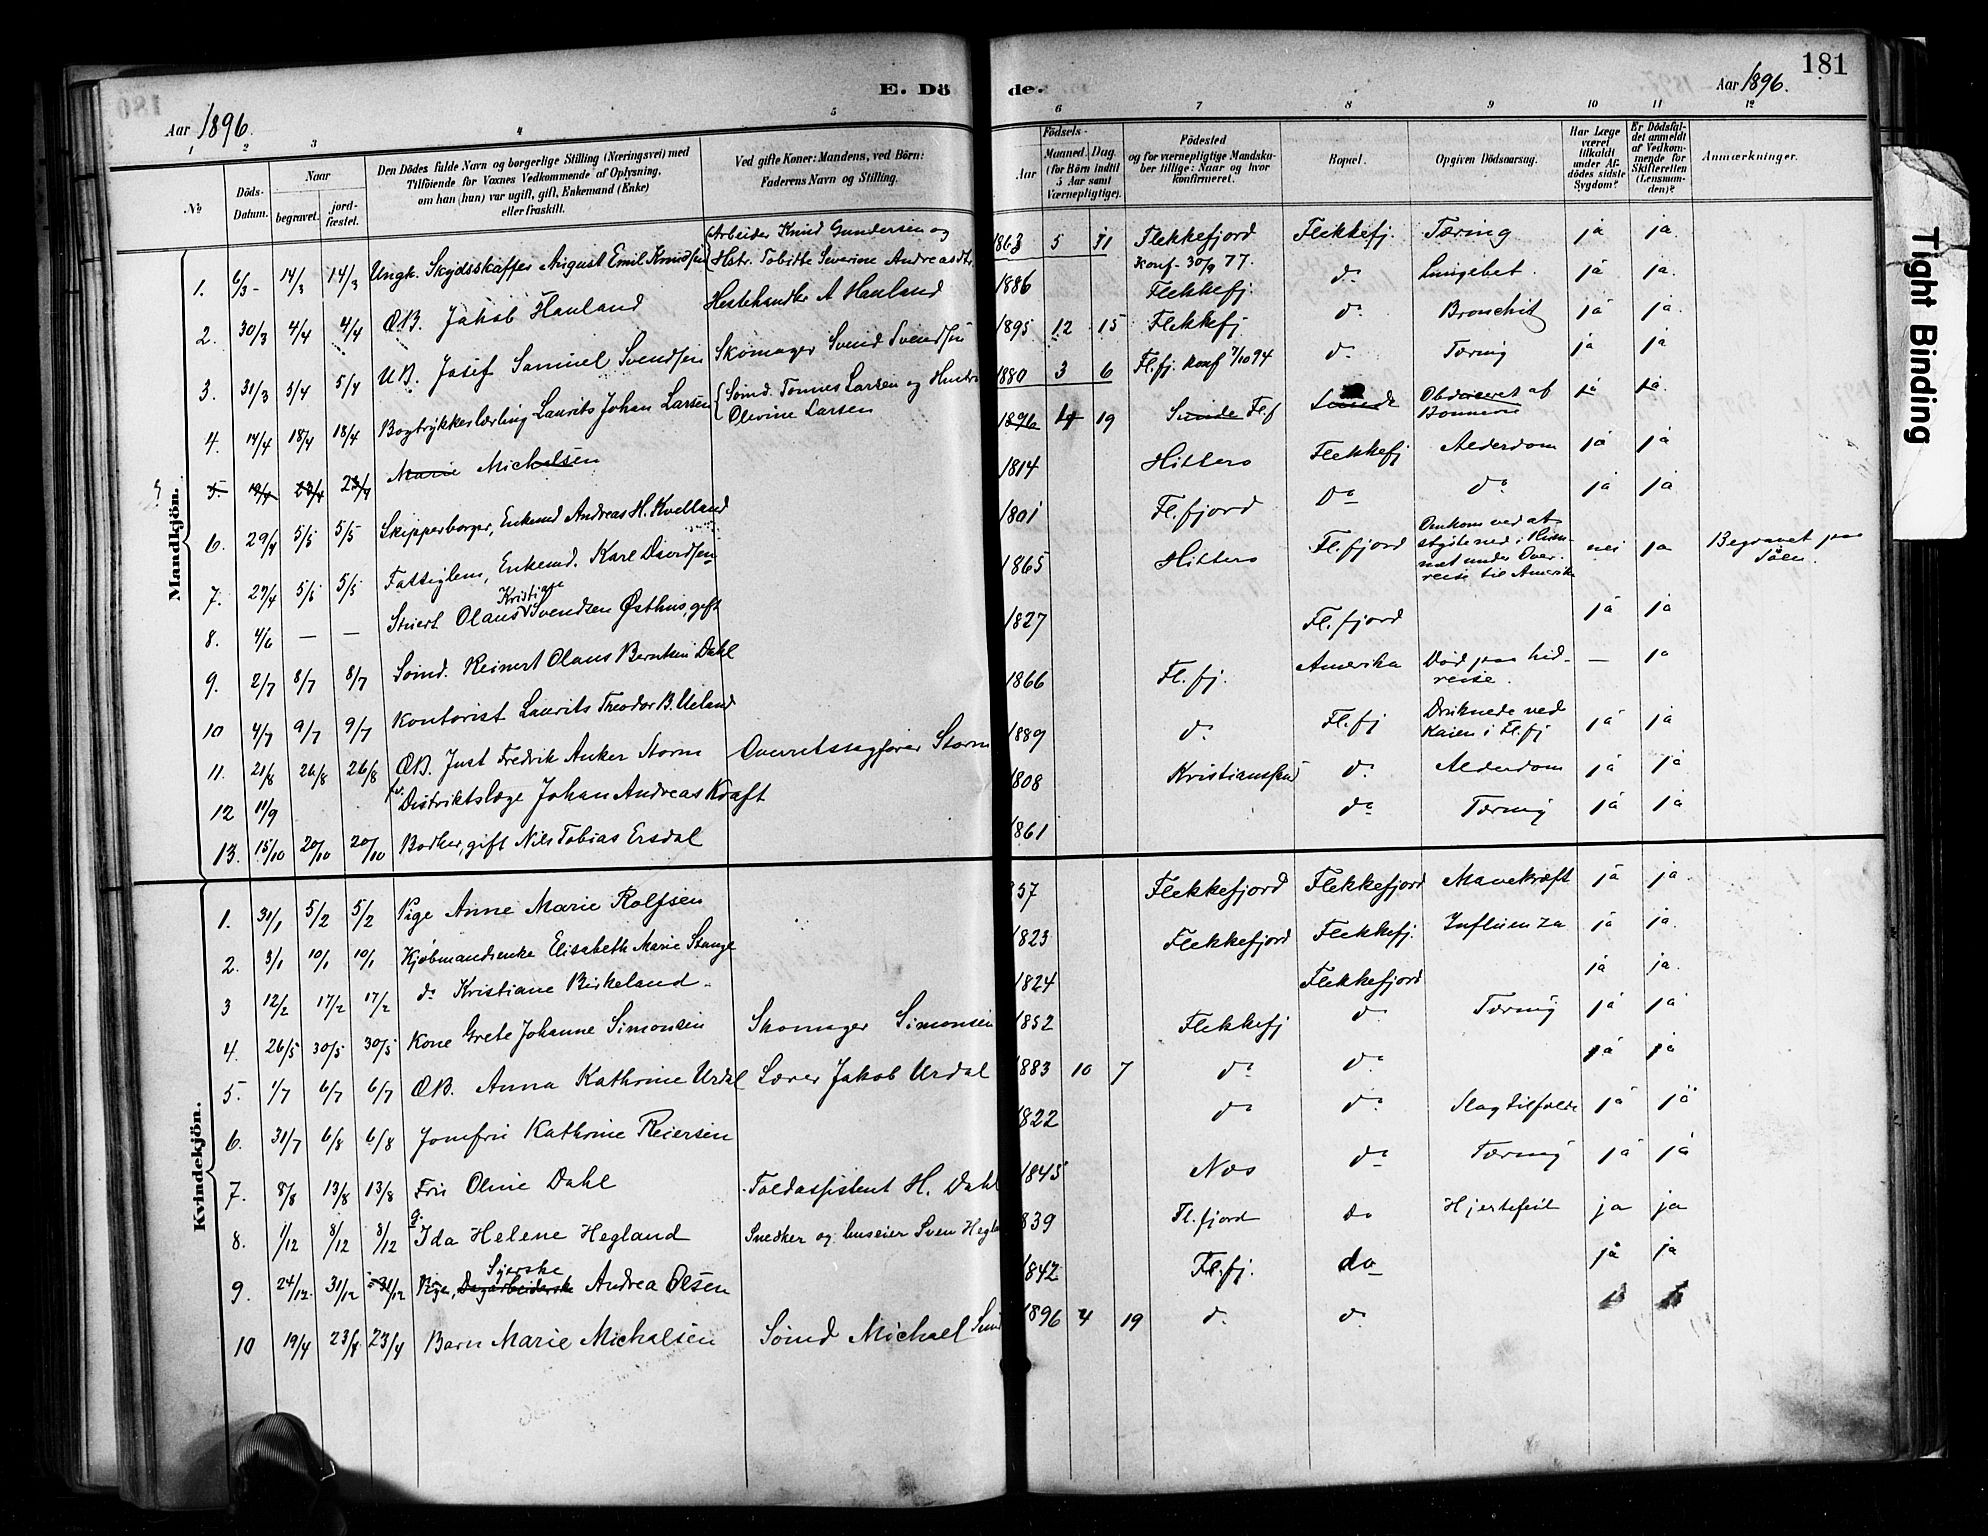 181
E. Dö de.
Aar 1896.
Aar 1896.
1 2 3 4 5 6 7 8 9 10 11 12
No
Döds-Datum.
Naar
begravet.
jord-fæstet.
Den Dödes fulde Navn og borgerlige Stilling (Næringsvei) med
Tilföiende for Voxnes Vedkommende af Oplysning,
om han (hun) var ugift, gift, Enkemand (Enke)
eller fraskilt.
Ved gifte Koner: Mandens, ved Börn:
Faderens Navn og Stilling.
Födsels-
Aar
Maaned. Dag.
(for Börn indtil
5 Aar samt
Værnepligtige).
Födested
og for værnepligtige Mandska-
ber tillige: Naar og hvor
konfirmeret.
Bopæl.
Opgiven Dödsaarsag.
Har Læge
været
tilkaldt
under Af-
dödes sidste
Sygdom?
Er Dödsfal-
det anmeldt
af Vedkom-
mende for
Skifteretten
(Lensman-
den)?
Anmærkninger.
Mandkjön.
1. 6/3 14/3 14/3 Ungk. Skydsskaffer August Emil Knudsen Arbeider Knud Gundersen og Hstr. Tobidte Severine Andreasdtr. 1863 5 31 Flekkefjord Konf. 30/9 77. Flekkefj. Tæring ja ja.
2. 30/3 4/4 4/4 ÆB. Jakob Hauland Hestehandler A Hauland 1886 Flekkefj. do Lungebet. ja ja.
3. 31/3 5/4 5/4 UB. Josef Samuel Svendsen Skomager Svend Svendsen 1895 12 15 Flekkefj do Bronchit ja ja.
4. 14/4 18/4 18/4 Bogtrykkerlærling Laurits Johan Larsen Sømd. Tønnes Larsen og Hustru Olevine Larsen 1880 3 6 Fl.fj. Konf 7/10 94 do Tæring ja ja
5. 19/4 23/4 23/4 Marie Michalsen 1896 4 19 Sunde Fl.f Sunde af ja ja.
6. 29/4 5/5 5/5 Skipperborger, Enkemd Andreas H. Kvelland 1814 Hitterø Flekkefj Alderdom ja ja
7. 27/4 5/5 5/5 Fattiglem, Enkemd. Karl Davidsen 1801 Fl.fjord Do do ja ja
8. 4/6 — — Stuert Olaus Kristian Svendsen Østhus, gift 1865 Hitterø Fl.fjord Omkom ved at styrte ned i under Over-reise til Amerika nei ja Begravet paa Søen.
9. 2/7 8/7 8/7 Sømd. Reinert Olaus Berntsen Dahl 1827 Fl.fjord ja ja
10 4/7 9/7 9/7 Kontorist Laurits Theodor B. Ueland 1866 Fl.fj. Amerika Død paa hid-reise. — ja
11. 21/8 26/8 26/8 ÆB. Just Fredrik Anker Storm Overretssagfører Storm 1889 do Fl.fj Druknede ved Kaien i Fl.fj ja ja
12 11/9 fv. Distriktslæge Johan Andreas Kraft 1808 Kristianssand do Alderdom ja ja
13. 15/10 20/10 20/10 Bødker, gift Nils Tobias Ersdal 1861 do Tæring ja ja
Kvindekjön.
1. 31/1 5/2 5/2 Pige Anne Marie Rolfsen 37 Flekkefjord Flekkefjord Mavekræft ja ja.
2. 3/1 10/1 10/1 Kjøbmandsenke Elisabeth Marie Stange 1823 Flekkefjord Flekkefj. Influenza ja ja.
3 12/2 17/2 17/2 do Kristiane Birkeland. 1824 Flekkefjord ja ja.
4. 26/5 30/5 30/5 Kone Grete Johanne Simonsen Skomager Simonsen 1852 Flekkefj do Tæring ja ja
5. 1/7 6/7 6/7 ÆB. Anna Kathrine Urdal Lærer Jakob Urdal 1883 10 7 do do ja ja
6. 31/7 6/8 6/8 Jomfru Kathrine Reiersen 1822 do do Slagtilfælde ja ja
7. 8/8 13/8 13/8 Fru Oline Dahl Toldassistent H. Dahl 1845 Næs do Tæring ja ja
8. 1/12 8/12 8/12 g. Ida Helene Hegland Snedker og huseier Sven Hegla 839 Fl.fjord do Hjertefeil ja ja
9. 24/12 31/12 31/12 Pige, Dagarbeiderske Syerske Andrea Olsen 1842 Fl.fj. do ja ja
10 19/4 23/4 23/4 Barn Marie Michalsen Sømd Michael Sun 1896 4 19 do do
Tight Binding